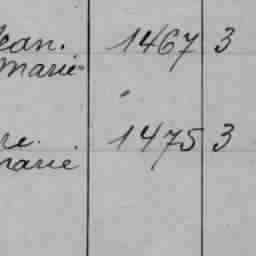 Jean. 1467 3
Marie
re. 1475 3
Marie